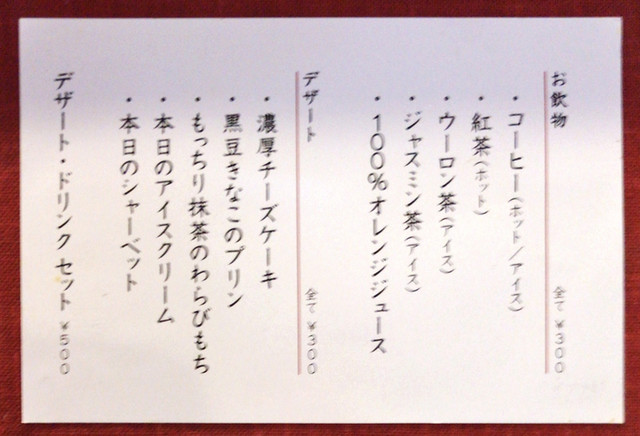 お飲物 全て ¥300
・コーヒー(ホット/アイス)
・紅茶(ホット)
・ウーロン茶(アイス)
・ジャスミン茶(アイス)
・100%オレンジジュース
デザート 全て ¥300
・濃厚チーズケーキ
・黒豆きなこのプリン
・もっちり抹茶のわらびもち
・本日のアイスクリーム
・本日のシャーベット
デザート・ドリンク セット ¥500